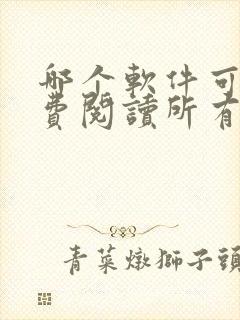 哪个軟件可
費閱讀所有
青菜燉獅子頭